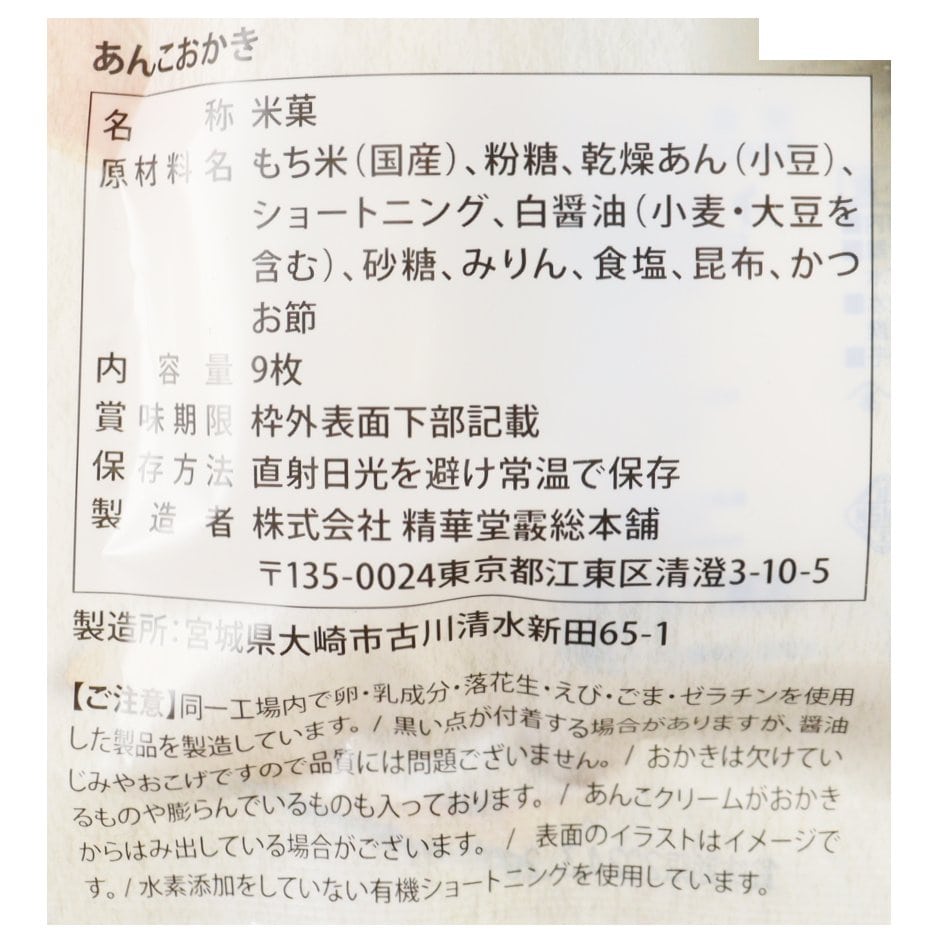 あんこおかき
名称 米菓
原材料名 もち米（国産）、粉糖、乾燥あん（小豆）、
ショートニング、白醤油（小麦・大豆を
含む）、砂糖、みりん、食塩、昆布、かつ
お節
内容量 9枚
賞味期限 枠外表面下部記載
保存方法 直射日光を避け常温で保存
製造者 株式会社 精華堂霰総本舗
〒135-0024東京都江東区清澄3-10-5
製造所：宮城県大崎市古川清水新田65-1
【ご注意】同一工場内で卵・乳成分・落花生・えび・ごま・ゼラチンを使用
した製品を製造しています。/ 黒い点が付着する場合がありますが、醤油
じみやおこげですので品質には問題ございません。/ おかきは欠けてい
るものや膨らんでいるものも入っております。/ あんこクリームがおかき
からはみ出している場合がございます。/ 表面のイラストはイメージで
す。/ 水素添加をしていない有機ショートニングを使用しています。